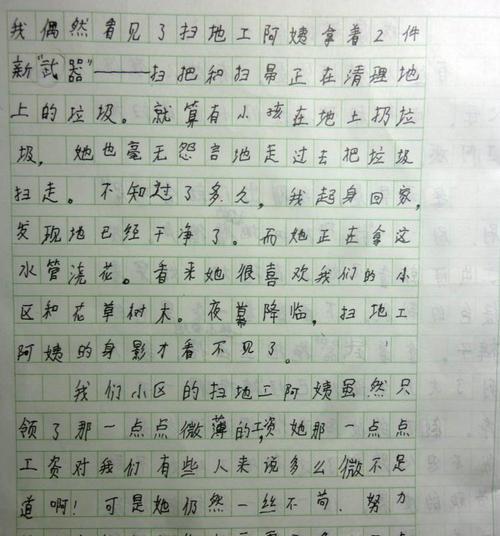 我偶然看见了扫地工阿姨拿着2件
新"武器"——扫把和扫帚正在清理地
上的垃圾。就算有小孩在地上扔垃
圾，她也毫无怨言地走过去把垃圾
扫走。不知过了多久，我起身回家，
发现地已经干净了。而她正在拿这
水管浇花。看来她很喜欢我们的小
区和花草树木。夜幕降临，扫地工
阿姨的身影才看不见了。
我们小区的扫地工阿姨虽然只
领了那一点点微薄的工资，她那一点点
工资对我们有些人来说多么微不足
道啊！可是她仍然一丝不苟，努力